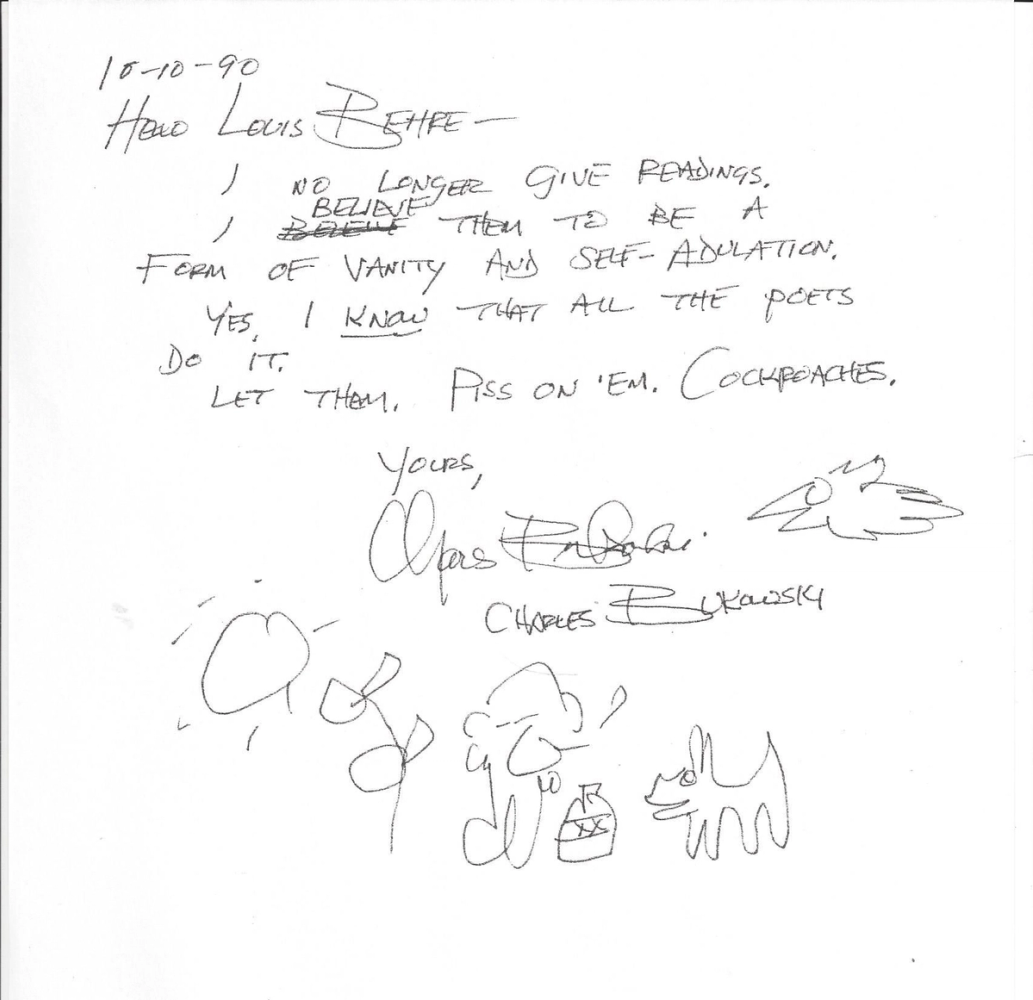 10-10-90
Hello Louis Behre —
I NO LONGER GIVE READINGS.
BELIEVE
I BELEIVE THEM TO BE A
FORM OF VANITY AND SELF-ADULATION.
YES, I KNOW THAT ALL THE POETS
DO IT.
LET THEM. PISS ON 'EM. COCKROACHES.
YOURS,
Charles Bukowski
CHARLES BUKOWSKI
XX